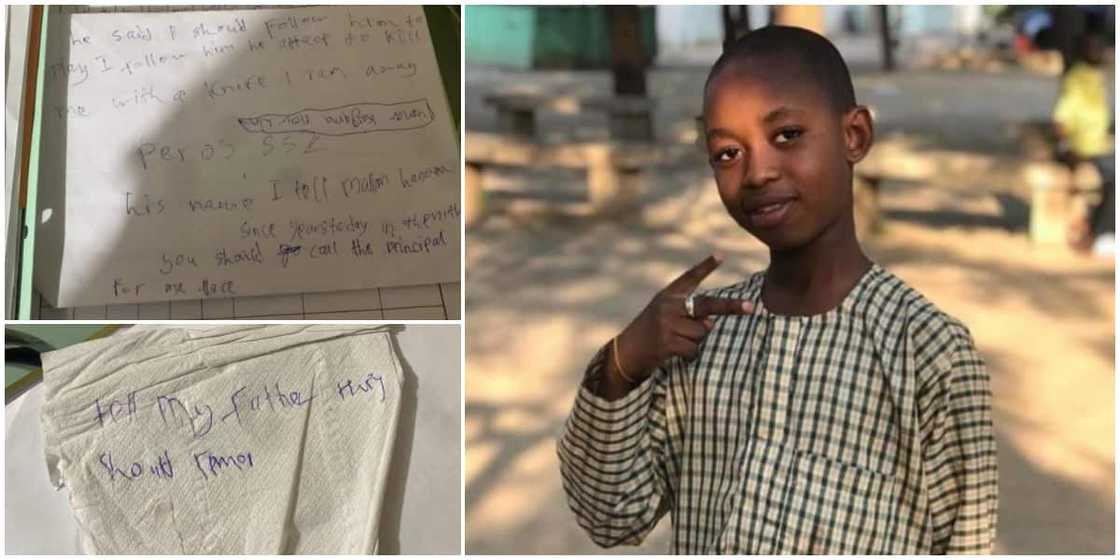 he said I should follow him to
play I follow him he attept to kill
me with a knife I ran away
peros SS2
his name I tell malam
since yearstoday in the
you should call the principal
for me
tell My Father they
should